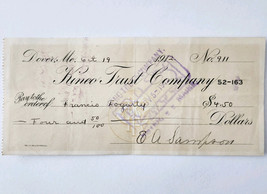 Dovers, Me. Oct 19 1912 No. 911
Kineo Trust Company 52-163
Pay to the
order of Francis Fogerty $4.50
Four and 50/100 Dollars
E A Sampson